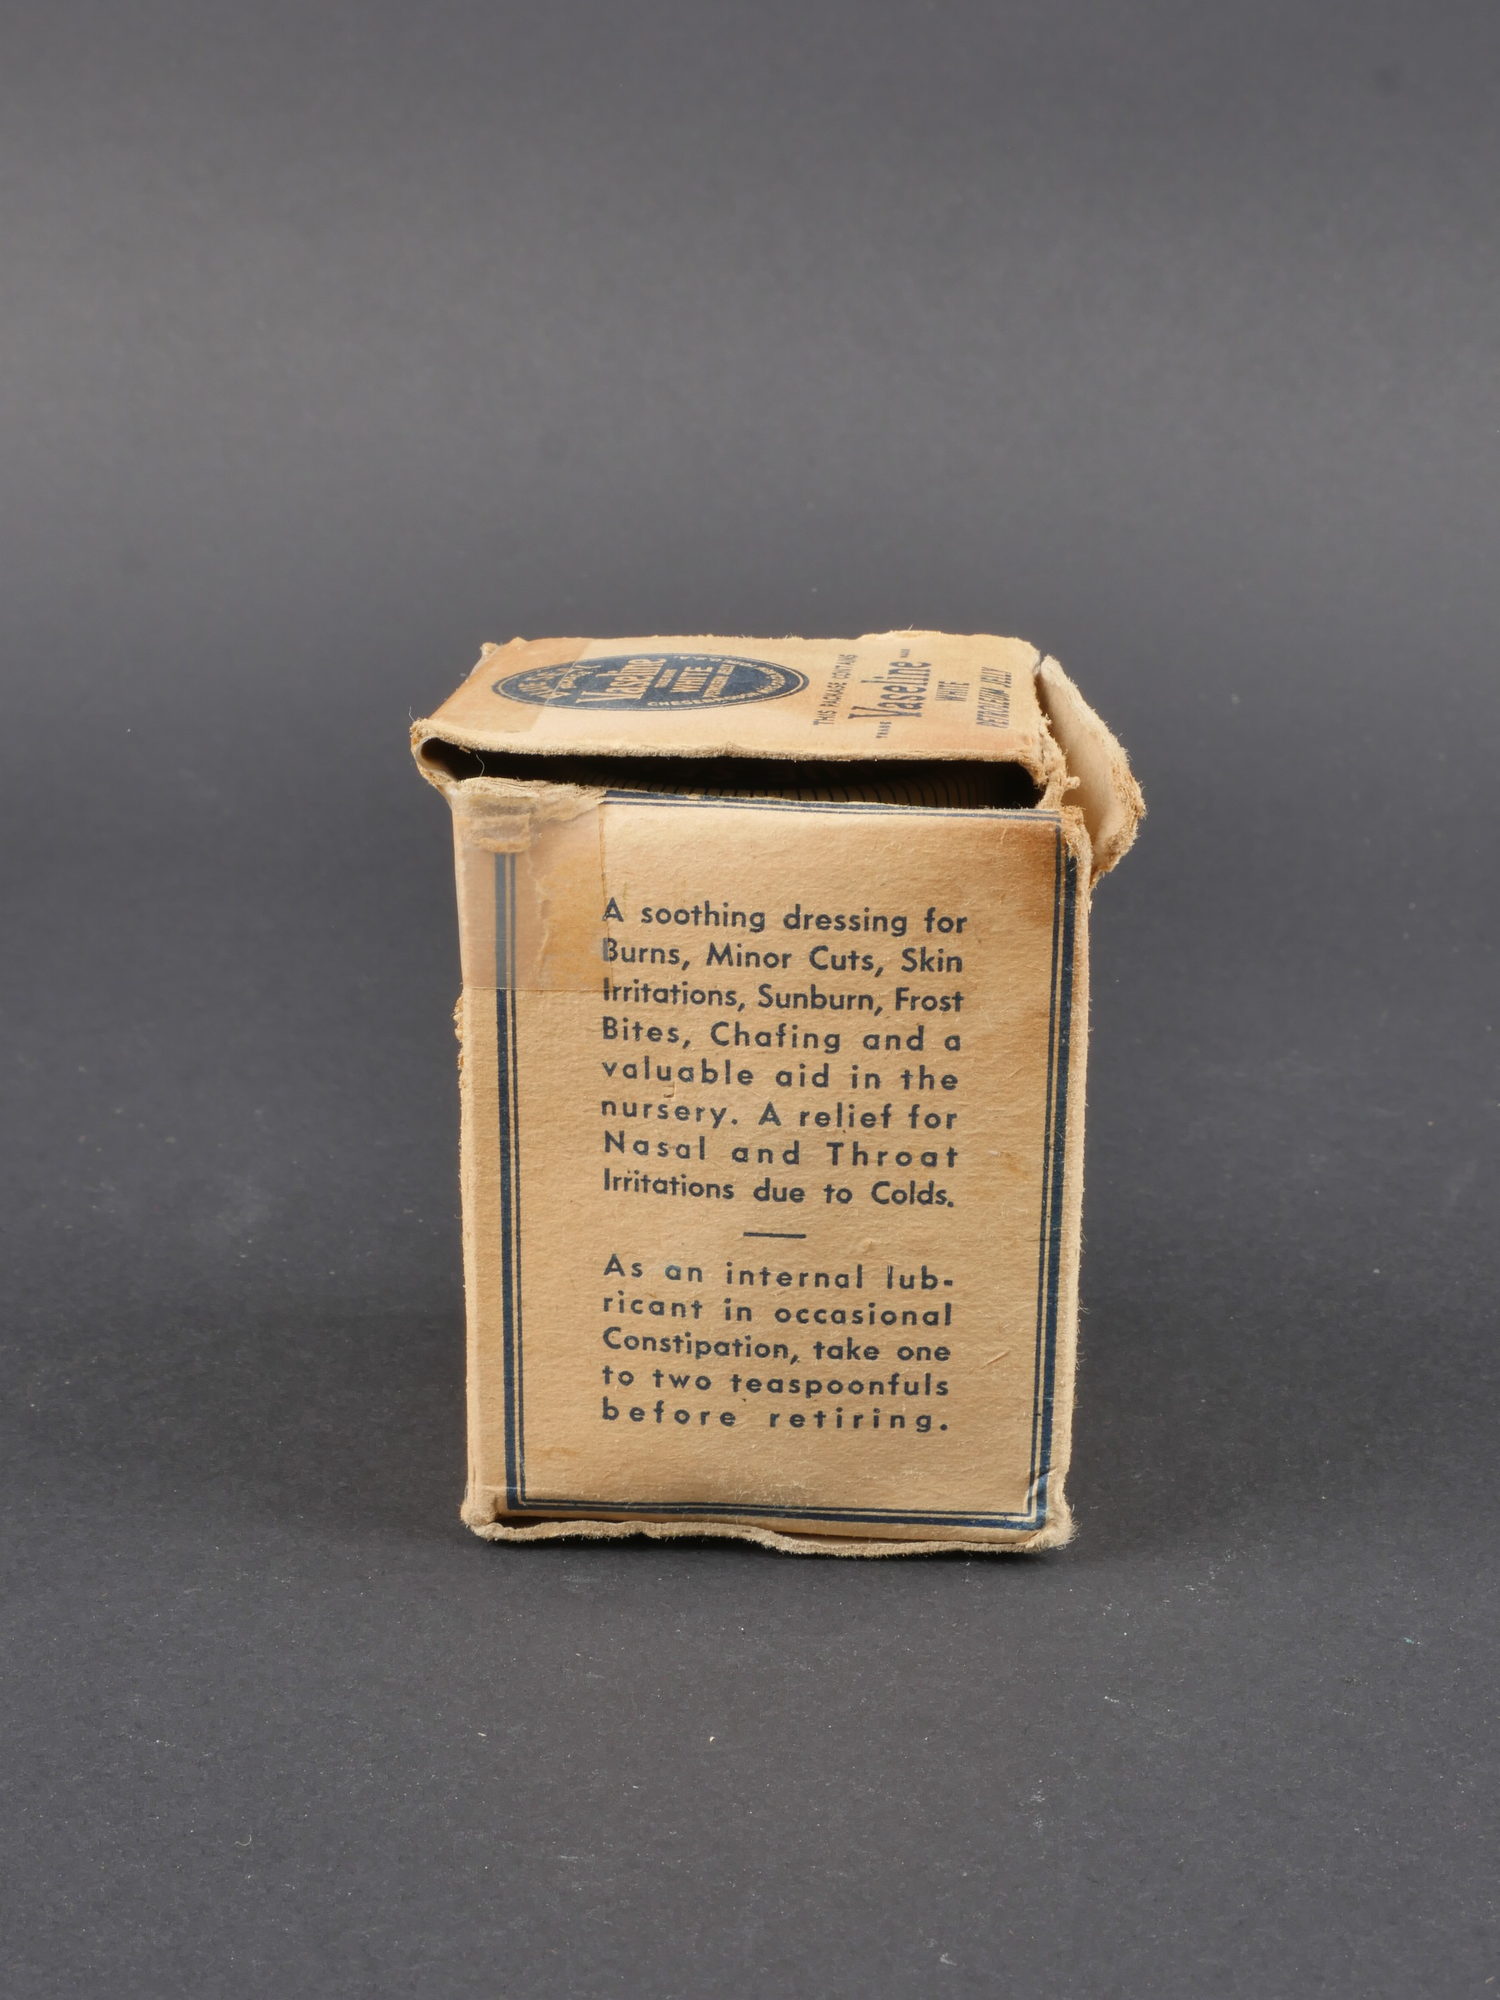 Vaseline
WHITE
THIS PACKAGE CONTAINS
TRADE Vaseline MARK
WHITE
PETROLEUM JELLY
A soothing dressing for
Burns, Minor Cuts, Skin
Irritations, Sunburn, Frost
Bites, Chafing and a
valuable aid in the
nursery. A relief for
Nasal and Throat
Irritations due to Colds.
As an internal lub-
ricant in occasional
Constipation, take one
to two teaspoonfuls
before retiring.